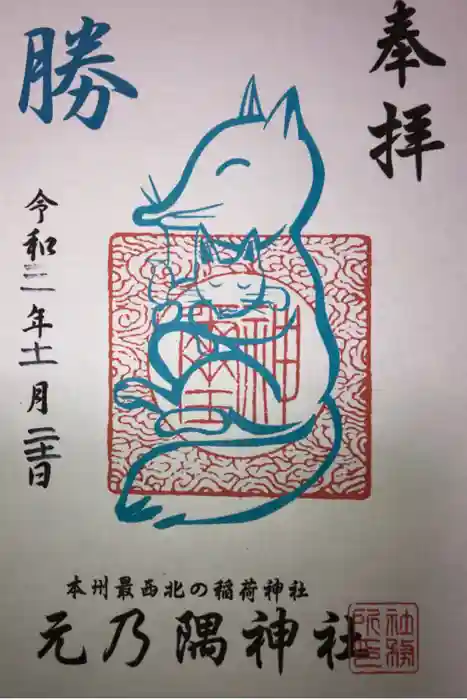 奉拝
勝
令和三年十一月
本州最西北の稲荷神社
元乃隅神社
社務所印